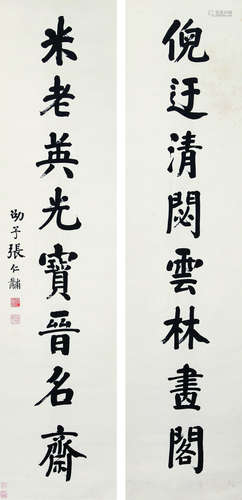 倪迂清閟雲林畫閣
米老英光寶晉名齋
劭予張仁黼